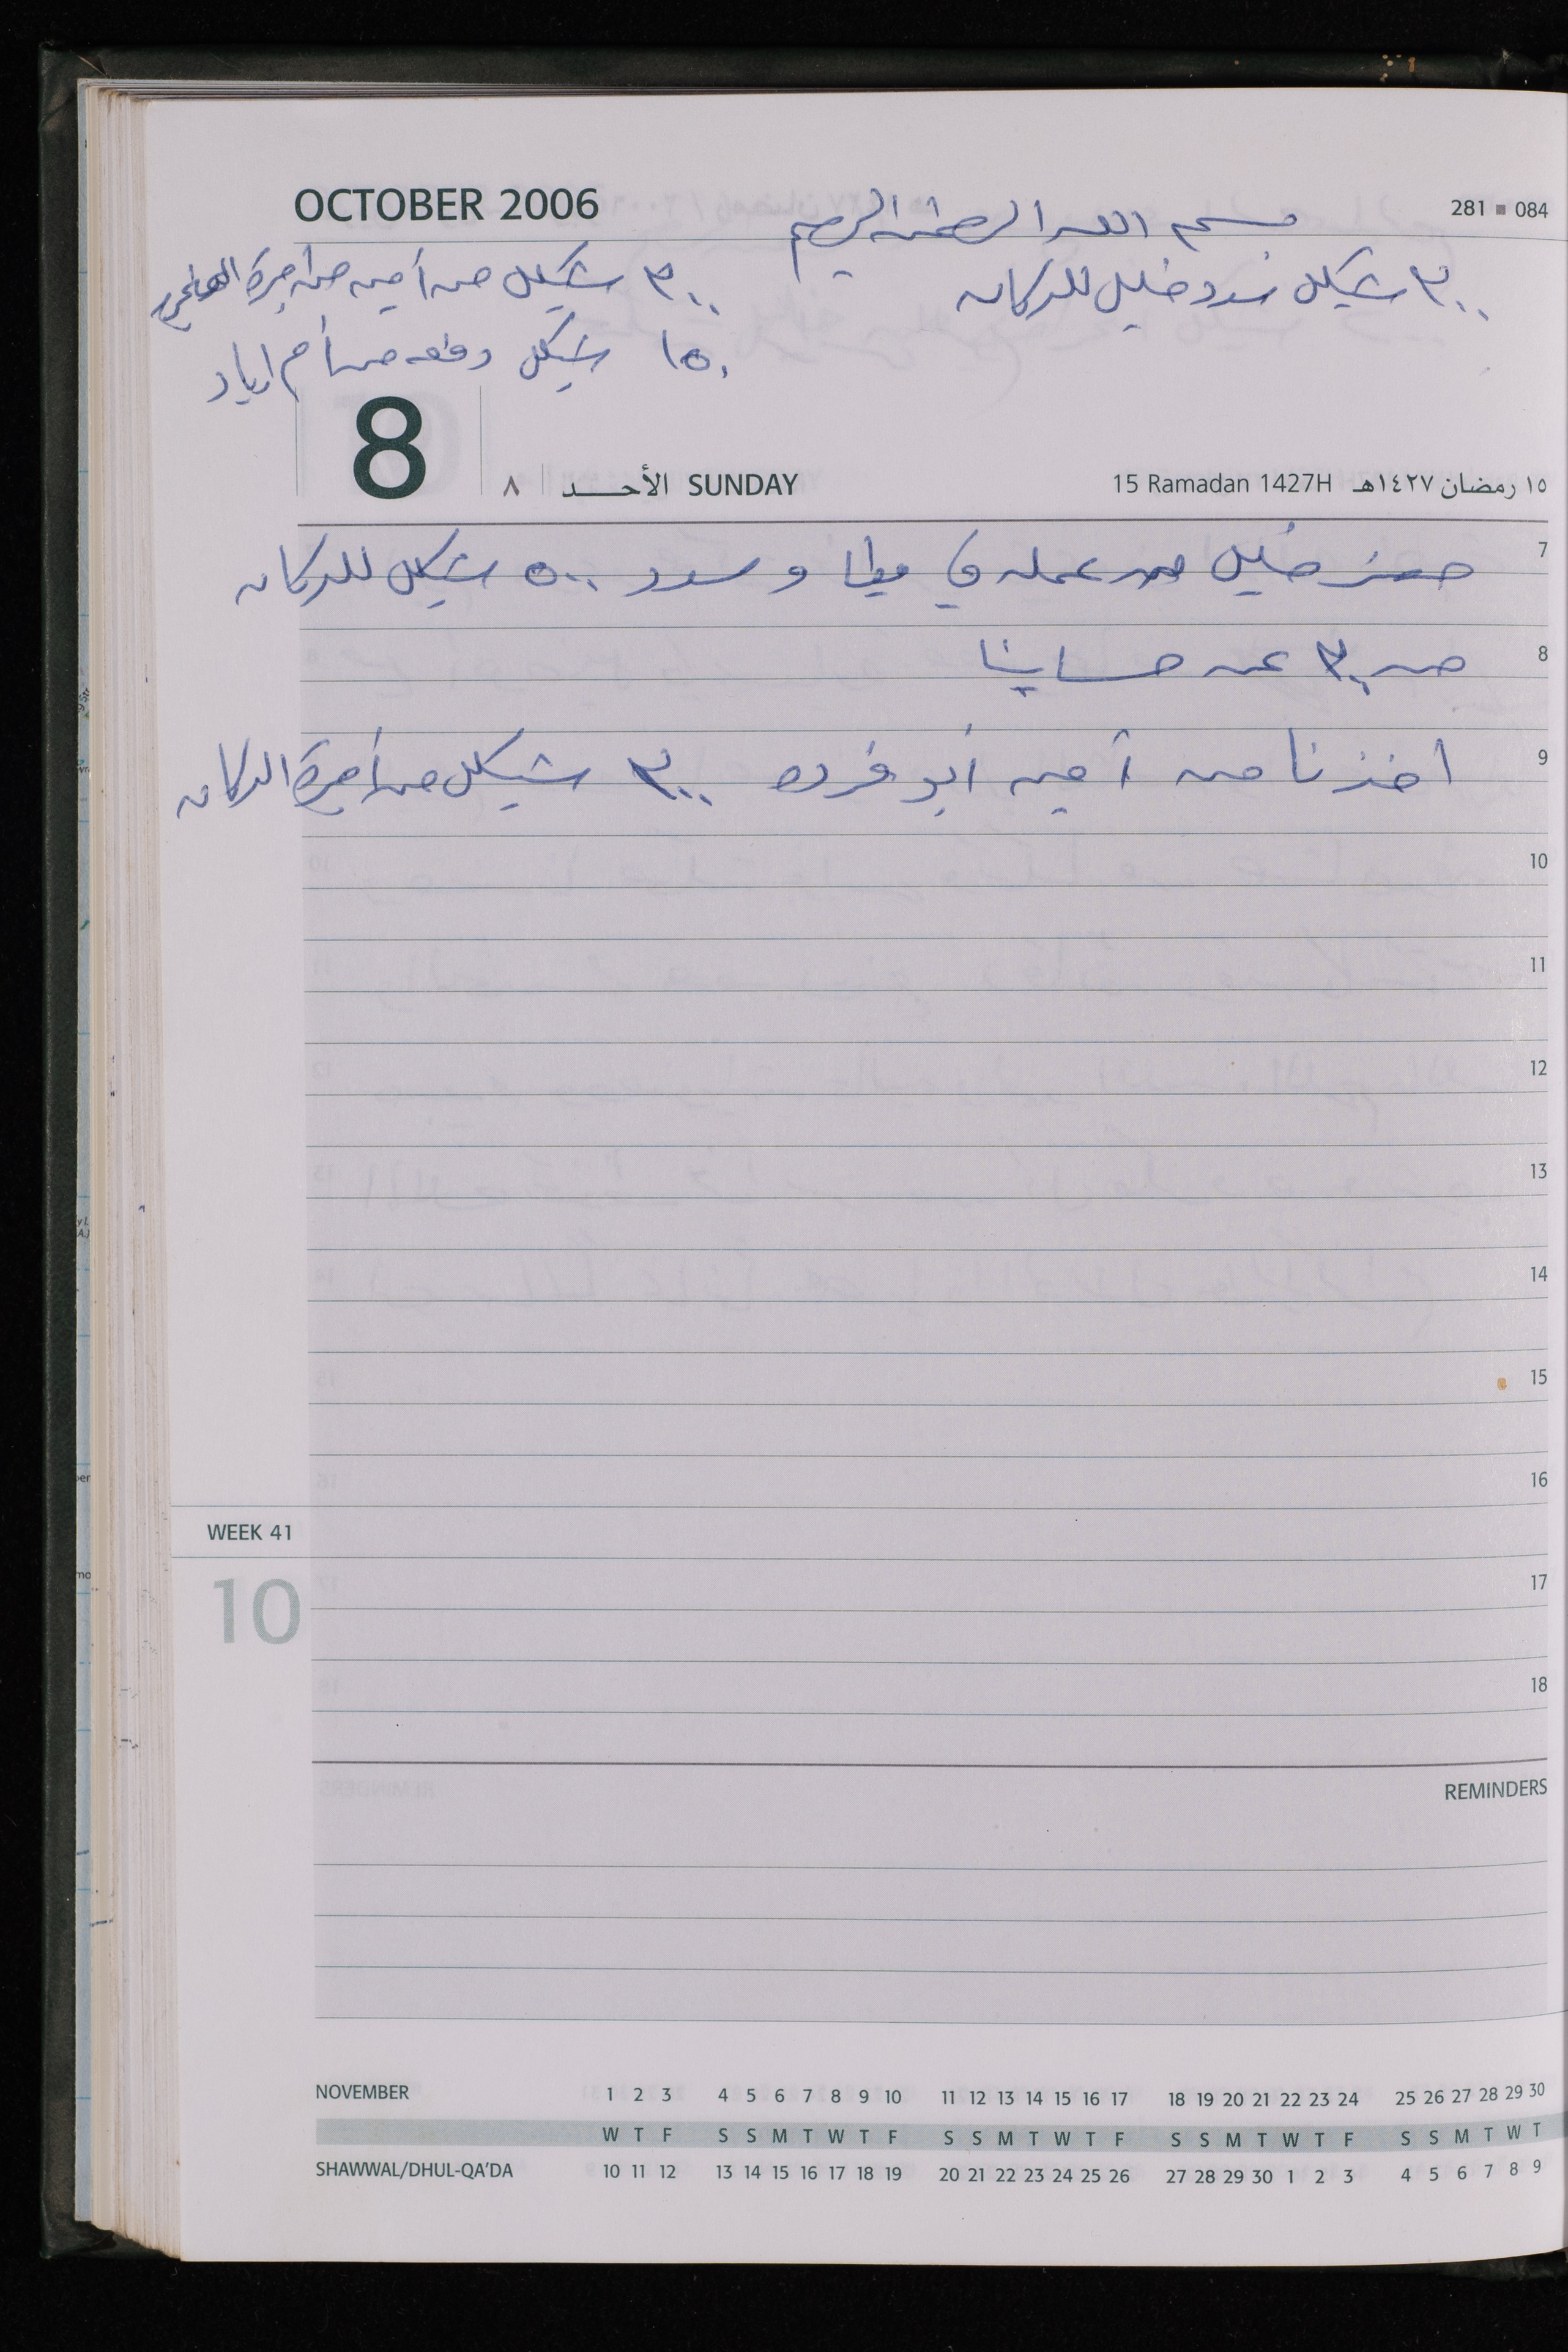 OCTOBER 2006
281 ▪ 084
بسم الله الرحمن الرحيم
٣٠٠ شيكل سدد خليل للدكان
٣٠٠ شيكل من أمين من أجرة
١٥٠ شيكل دفعه من أم اياد
8 ٨ الأحد SUNDAY
15 Ramadan 1427H ١٥ رمضان ١٤٢٧هـ
7
حضر خليل من عمله في يطا و سدد ٥٠٠ شيكل للدكان
8
منه ٣٠٠ عن حسابنا
9
اخذنا من أمين أبو فرده ٣٠٠ شيكل من أجرة الدكان
10
11
12
13
14
15
16
WEEK 41
10
17
18
REMINDERS
NOVEMBER 1 2 3 4 5 6 7 8 9 10 11 12 13 14 15 16 17 18 19 20 21 22 23 24 25 26 27 28 29 30
W T F S S M T W T F S S M T W T F S S M T W T F S S M T W T
SHAWWAL/DHUL-QA'DA 10 11 12 13 14 15 16 17 18 19 20 21 22 23 24 25 26 27 28 29 30 1 2 3 4 5 6 7 8 9